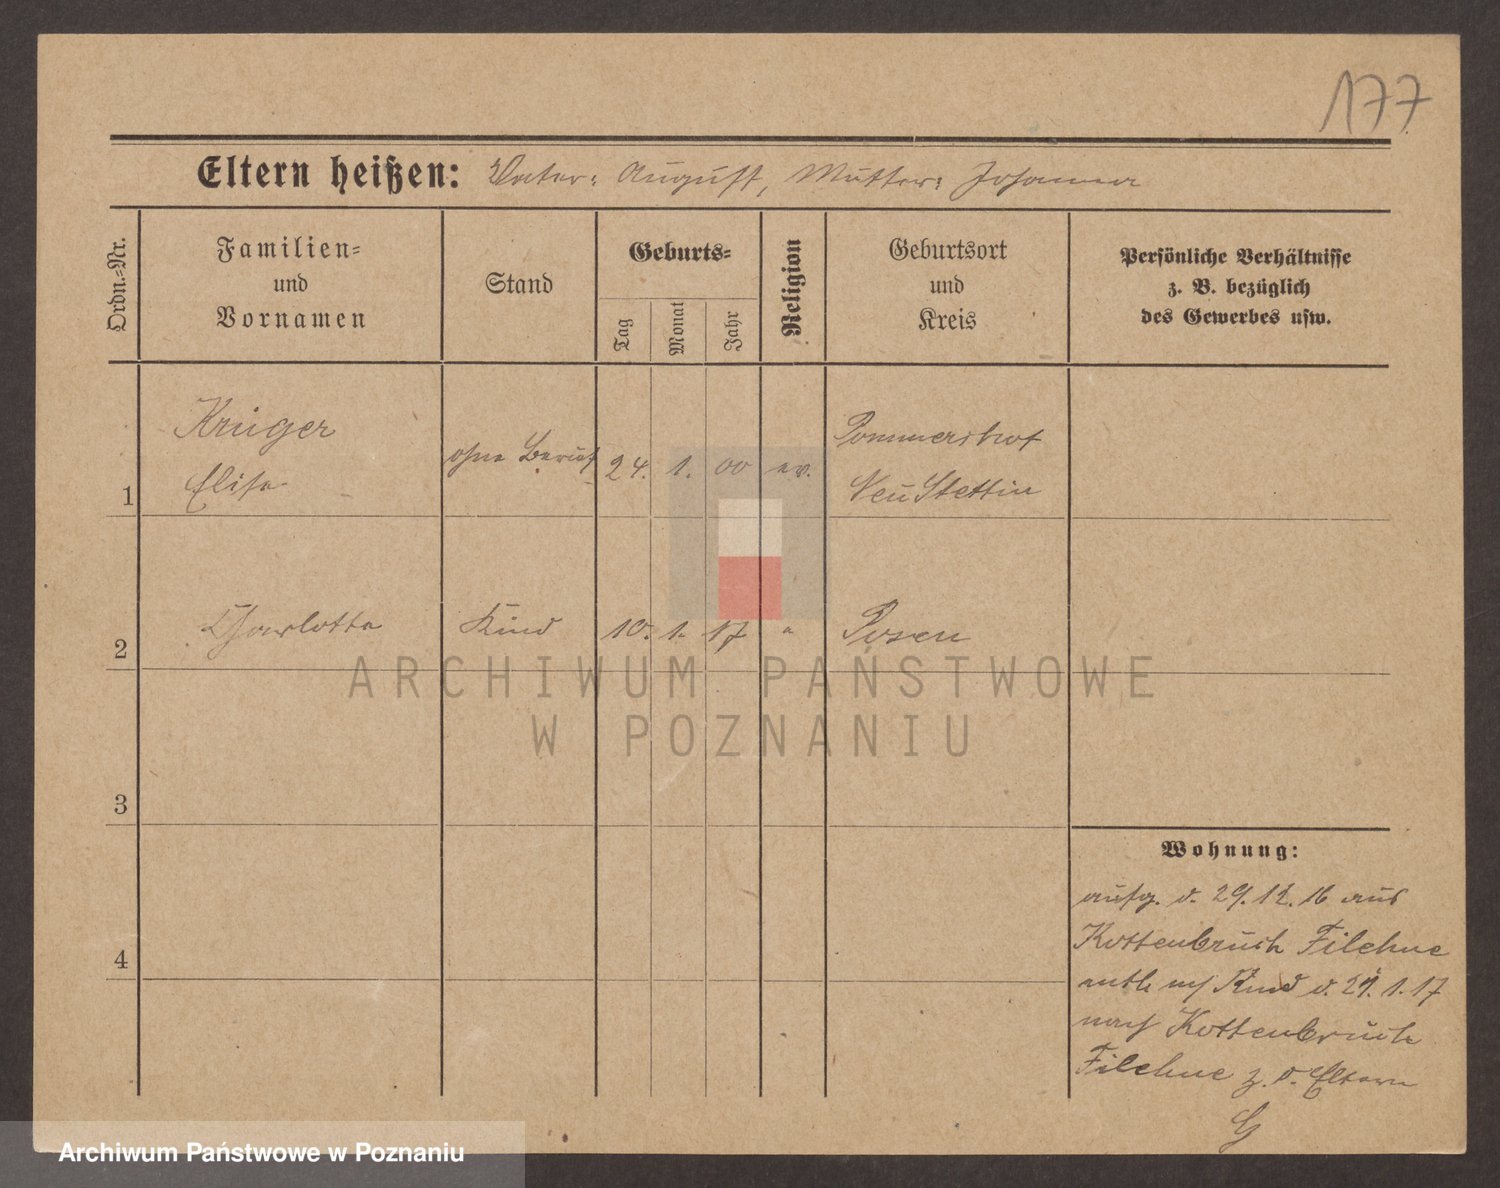 177
Eltern heißen: Vater: August, Mutter: Johanna
Ordn.=Nr.
Familien=
und
Vornamen
Stand
Geburts=
Tag
Monat
Jahr
Religion
Geburtsort
und
Kreis
Persönliche Verhältnisse
z. B. bezüglich
des Gewerbes usw.
1
Krüger
Elise
ohne Beruf
24. 1. 00
ev.
Pommershof
Neu Stettin
2
Charlotte
Kind
10. 1. 17
"
Posen
3
4
Wohnung:
aufg. d. 29. 12. 16 aus
Kottenbruch Filehne
entl. m/ Kind d. 29. 1. 17
nach Kottenbruch
Filehne z. d. Eltern
G
ARCHIWUM PAŃSTWOWE
W POZNANIU
Archiwum Państwowe w Poznaniu